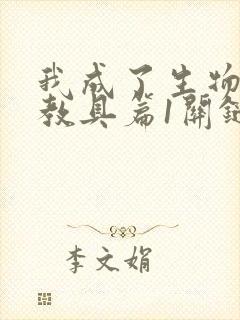 我成了生物
教具篇1開
李文娟